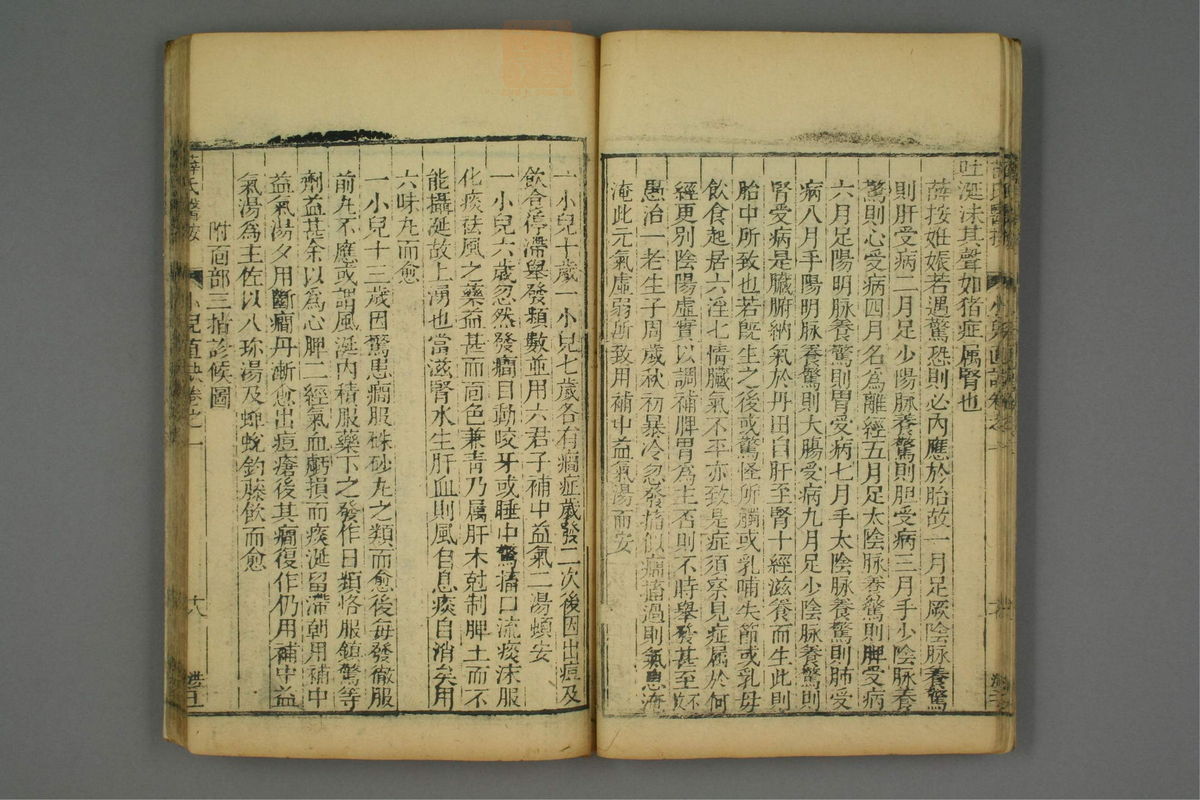 吐涎沫其聲如猪症属腎也
薛按姙娠若遇驚恐則必內應於胎故一月足厥陰脉養驚
則肝受病二月足少陽脉養驚則胆受病三月手少陰脉養
驚則心受病四月名為離經五月足太陰脉養驚則脾受病
六月足陽明脉養驚則胃受病七月手太陰脉養驚則肺受
病八月手陽明脉養驚則大腸受病九月足少陰脉養驚則
腎受病是臟腑納氣於丹田自肝至腎十經滋養而生此則
胎中所致也若既生之後或驚怪所觸或乳哺失節或乳母
飲食起居六淫七情臟氣不平亦致是症須察見症属於何
經更別陰陽虛實以調補脾胃為主否則不時舉發甚至不救
愚治一老生子周歲秋初暴冷忽發搐似癇搐過則氣息淹
淹此元氣虛弱所致用補中益氣湯而安
一小兒十歲一小兒七歲各有癇症歲發二次後因出痘及
飲食停滯舉發頻數並用六君子補中益氣二湯頓安
一小兒六歲忽然發癇目動咬牙或睡中驚搐口流痰沫服
化痰祛風之藥益甚而面色兼青乃属肝木尅制脾土而不
能攝涎故上湧也當滋腎水生肝血則風自息痰自消矣用
六味丸而愈
一小兒十三歲因驚患癇服硃砂丸之類而愈後每發徹服
前丸不應或謂風涎內積服藥下之發作日頻恪服鎮驚等
劑益甚余以為心脾二經氣血虧損而痰涎留滯朝用補中
益氣湯夕用斷癇丹漸愈出痘瘡後其癇復作仍用補中益
氣湯為主佐以八珍湯及蟬蛻鈎藤飲而愈
附面部三指診候圖
薛氏醫按
小兒直訣卷之一
十八